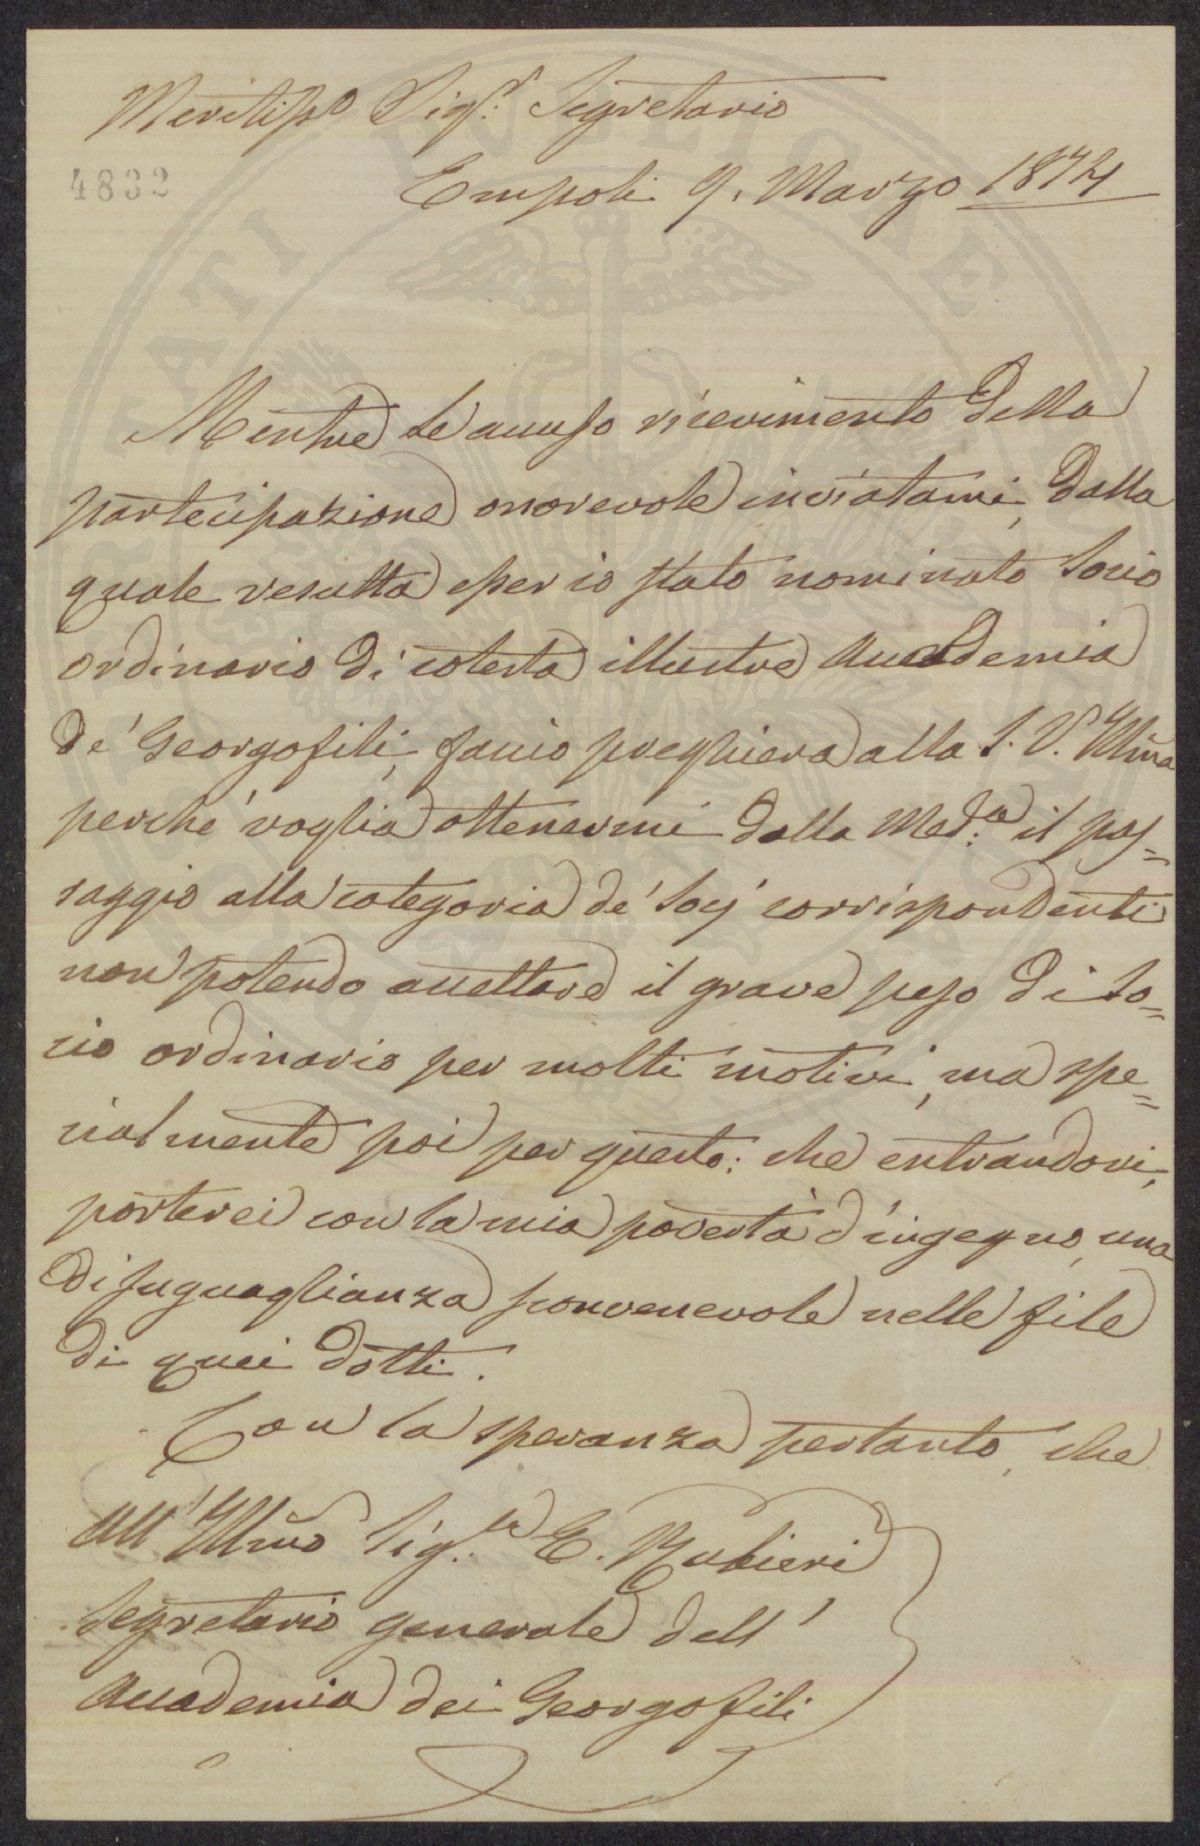 Meritisso. Sigr. Segretario
4832
Empoli 9. Marzo 1874
Mentre Le accuso ricevimento della
partecipazione onorevole inviatami, dalla
quale resulta esser io stato nominato Socio
ordinario di cotesta illustre Accademia
de' Georgofili, faccio preghiera alla S. V. Illma
perché voglia ottenermi dalla Meda. il pas=
saggio alla categoria de' Socj corrispondenti
non potendo accettare il grave peso di So=
cio ordinario per molti motivi, ma spe=
cialmente poi per questo: che entrandovi,
porterei con la mia povertà d'ingegno, una
disuguaglianza sconvenevole nelle file
di quei dotti.
Con la speranza pertanto, che
All' Illmo Sigr. E. Rubieri
Segretario generale dell'
Accademia dei Georgofili